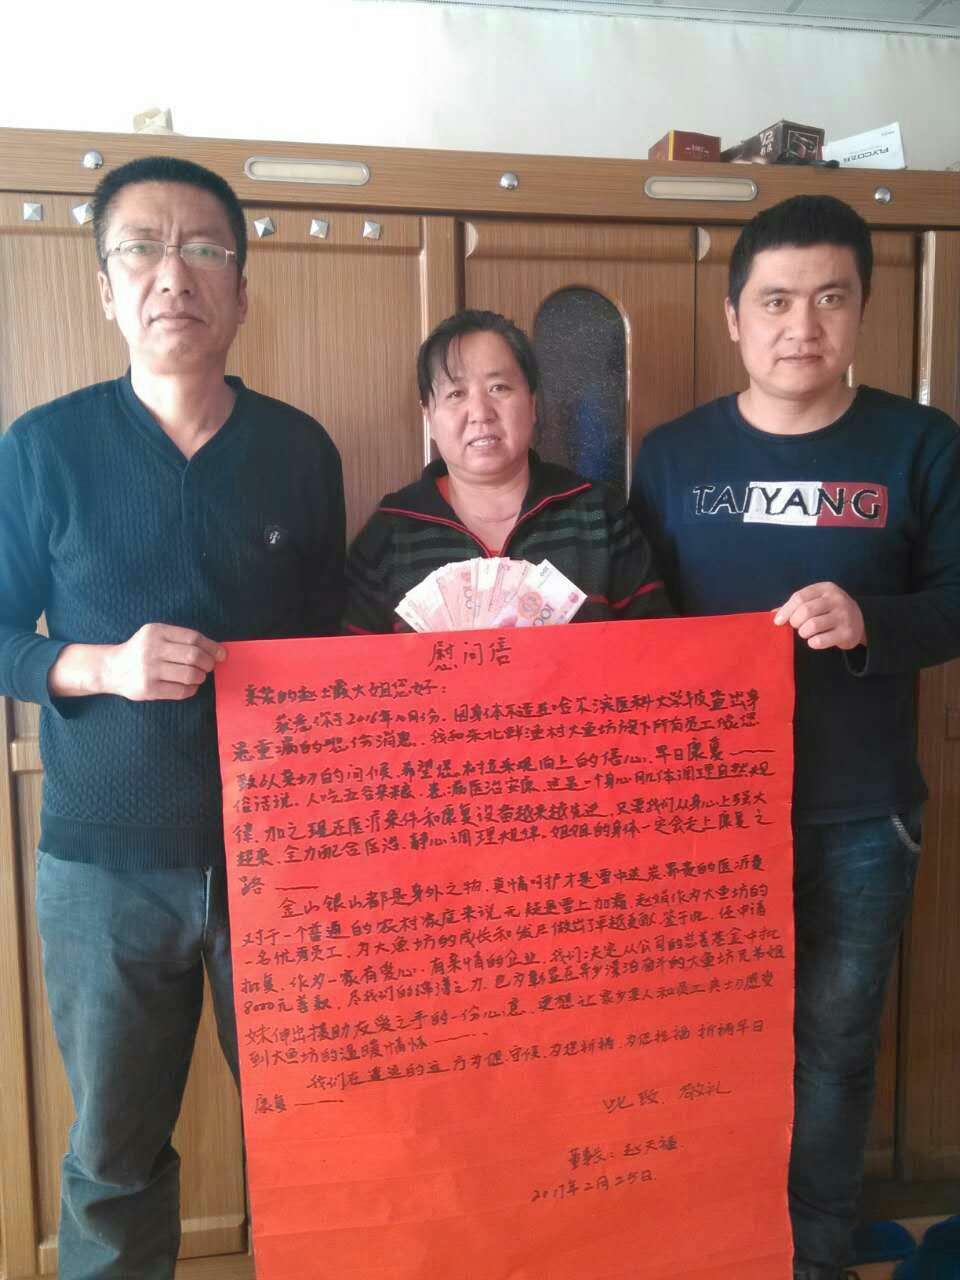 FLYCO飞科
TAIYANG
100
慰问信
亲爱的赵土霞大姐您好：
获悉你于2016年10月份，因身体不适在哈尔滨医科大学被查出身
患重病的悲伤消息．我和东北野渔村大鱼坊旗下所有员工向您
致以亲切的问候，希望您保持乐观向上的信心，早日康复——
俗话说．人吃五谷杂粮．患病医治安康．这是一个身心肌体调理自然规
律，加之现在医疗条件和康复设备越来越先进，只要我们从身心上强大
起来，全力配合医治，静心调理规律，姐姐的身体一定会走上康复之
路——
金山银山都是身外之物．真情呵护才是雪中送炭昂贵的医疗费
对于一个普通的农村家庭来说无疑是雪上加霜．赵娟作为大鱼坊的
一名优秀员工，为大鱼坊的成长和发展做出了卓越贡献．鉴于此．任申请
批复．作为一家有爱心．有亲情的企业，我们决定从公司的慈善基金中批
8000元善款，尽我们的绵薄之力．也为彰显在异乡漂泊奋斗的大鱼坊兄弟姐
妹伸出援助友爱之手的一份心意．更想让家乡亲人和员工真切感受
到大鱼坊的温暖情怀——
我们在遥远的远方为您．守候．为您祈祷．为您祝福 祈祷早日
康复——
此致．敬礼
董事长：赵天福
2017年2月25日